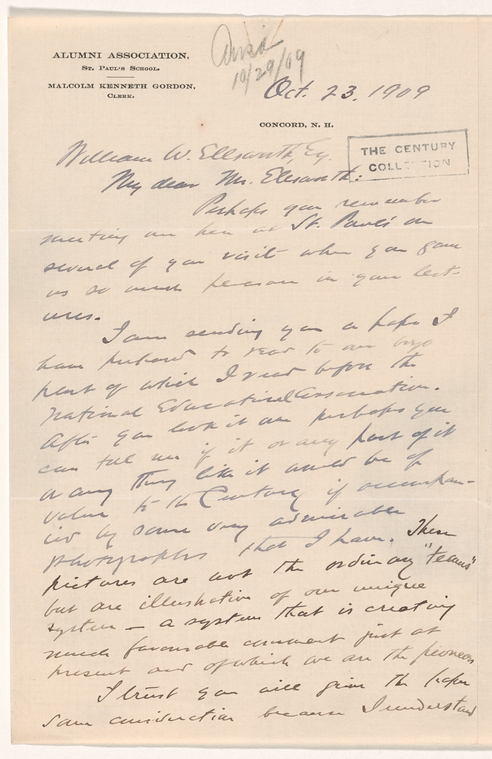 ALUMNI ASSOCIATION,
ST. PAUL'S SCHOOL.
MALCOLM KENNETH GORDON,
CLERK.
Ansd
10/29/09
Oct. 23, 1909
CONCORD, N. H.
THE CENTURY
COLLECTION
William W. Ellsworth, Esq.
My dear Mr. Ellsworth:
Perhaps you remember
meeting me here at St. Paul's on
several of your visits when you gave
us so much pleasure in your lect-
ures.
I am sending you a paper I
have prepared to read to our boys
part of which I read before the
National Educational Association.
After you look it over perhaps you
can tell me if it or any part of it
or any thing like it would be of
value to the Century if accompan-
ied by some very admirable
photographs that I have. These
pictures are not the ordinary "teams"
but are illustrative of our unique
system — a system that is creating
much favourable comment just at
present and of which we are the pioneers
I trust you will give the paper
some consideration because I understand